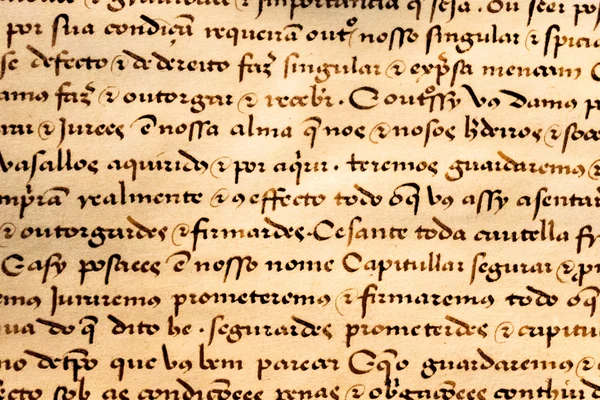 importancia q̃ seja. Ou seer
por sua condiçam requeiram out̊ nosso singular ⁊
se defecto ⁊ de dereito faz̃ singular ⁊ exp̃sa mencam
amos faz̃ ⁊ outorgar ⁊ receb̃r. E outoᷤssy vos damos
rar ⁊ Jurees ẽ nossa alma q̃ nos ⁊ nosos h̃deiros ⁊
vasallos aquiridos ⁊ por aq̃rir. teremos guardaremos ⁊
realmente ⁊ effecto todo o q̃ vos assy asentar
⁊ outorgardes ⁊ firmardes. Cesante toda cautella
E asy posaees ẽ nosso nome Capitullar segurar ⁊
emos Juraremos prometeremos ⁊ firmaremos todo o q̃
do q̃ dito he. segurardes prometerdes ⁊ capitu
que vos bem parecer E q̃ o guardaremos ⁊
sob as condiçõees penas ⁊ obr̃gaçõees